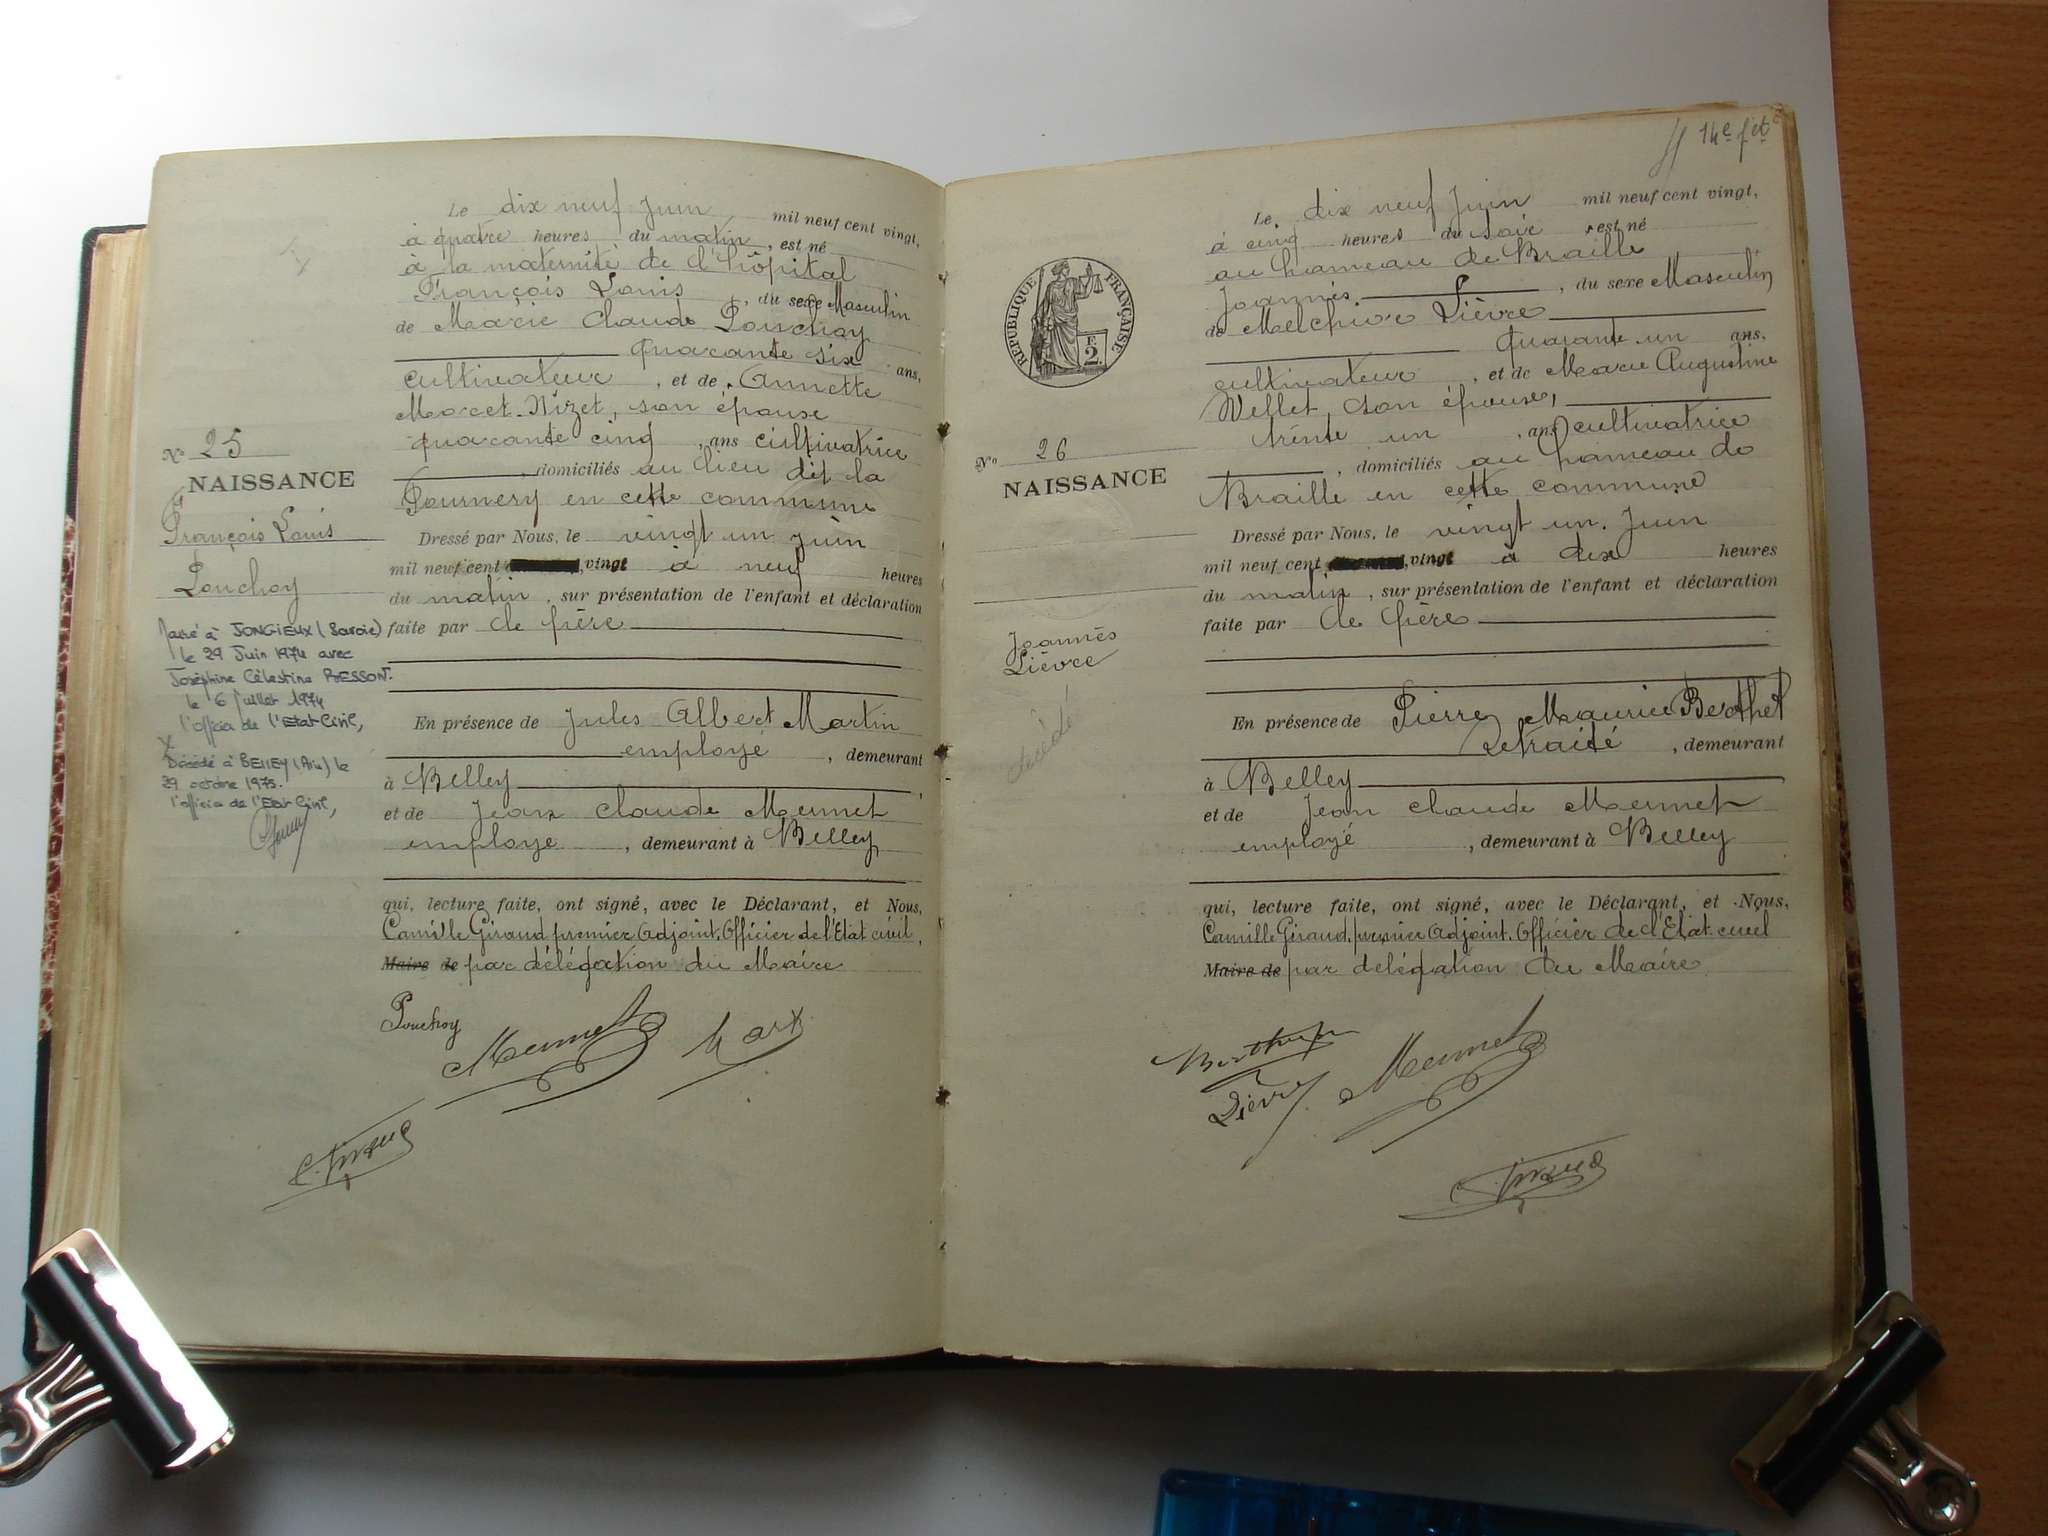 Le dix neuf Juin mil neuf cent vingt,
à quatre heures du matin, est né
à la maternité de l'hôpital
François Louis, du sexe Masculin
de Marie Claude Pouchoy
quarante six ans,
cultivateur, et de Annette
Marcet-Nizet, son épouse
quarante cinq, ans cultivatrice
domiciliés au lieu dit la
en cette commune
Dressé par Nous, le vingt un Juin
mil neuf cent vingt à neuf heures
du matin, sur présentation de l'enfant et déclaration
faite par le père
En présence de Jules Albert Martin
employé, demeurant
à Belley
et de Jean Claude Mermet
employé, demeurant à Belley
qui, lecture faite, ont signé, avec le Déclarant, et Nous,
Camille Giraud premier adjoint. Officier de l'Etat civil,
Maire de par délégation du Maire
Pouchoy Mermet
N° 25
NAISSANCE
François Louis
Pouchoy
Marié à JONGIEUX (Savoie)
le 29 Juin 1974 avec
Joséphine Célestine BESSON.
le 6 Juillet 1974
l'officier de l'Etat Civil,
Décédé à BELLEY (Ain) le
29 octobre 1975.
l'officier de l'Etat Civil,
14e fet
Le dix neuf Juin mil neuf cent vingt,
à cinq heures du soir est né
au hameau de Braille
Joannès, du sexe Masculin
de Melchior Lièvre
quarante un ans,
cultivateur, et de Marie Augustine
Vellet son épouse,
trente un, ans cultivatrice
, domiciliés au hameau de
Braille en cette commune
Dressé par Nous, le vingt un Juin
mil neuf cent vingt à dix heures
du matin, sur présentation de l'enfant et déclaration
faite par le père
En présence de Pierre Maurice Berthet
retraité, demeurant
à Belley
et de Jean Claude Mermet
employé, demeurant à Belley
qui, lecture faite, ont signé, avec le Déclarant, et Nous,
Camille Giraud, premier adjoint. Officier de l'Etat civil
Maire de par délégation du Maire
Berthet Mermet
Lièvre
RÉPUBLIQUE FRANÇAISE
F.
2.
N° 26
NAISSANCE
Joannès
Lièvre
décédé